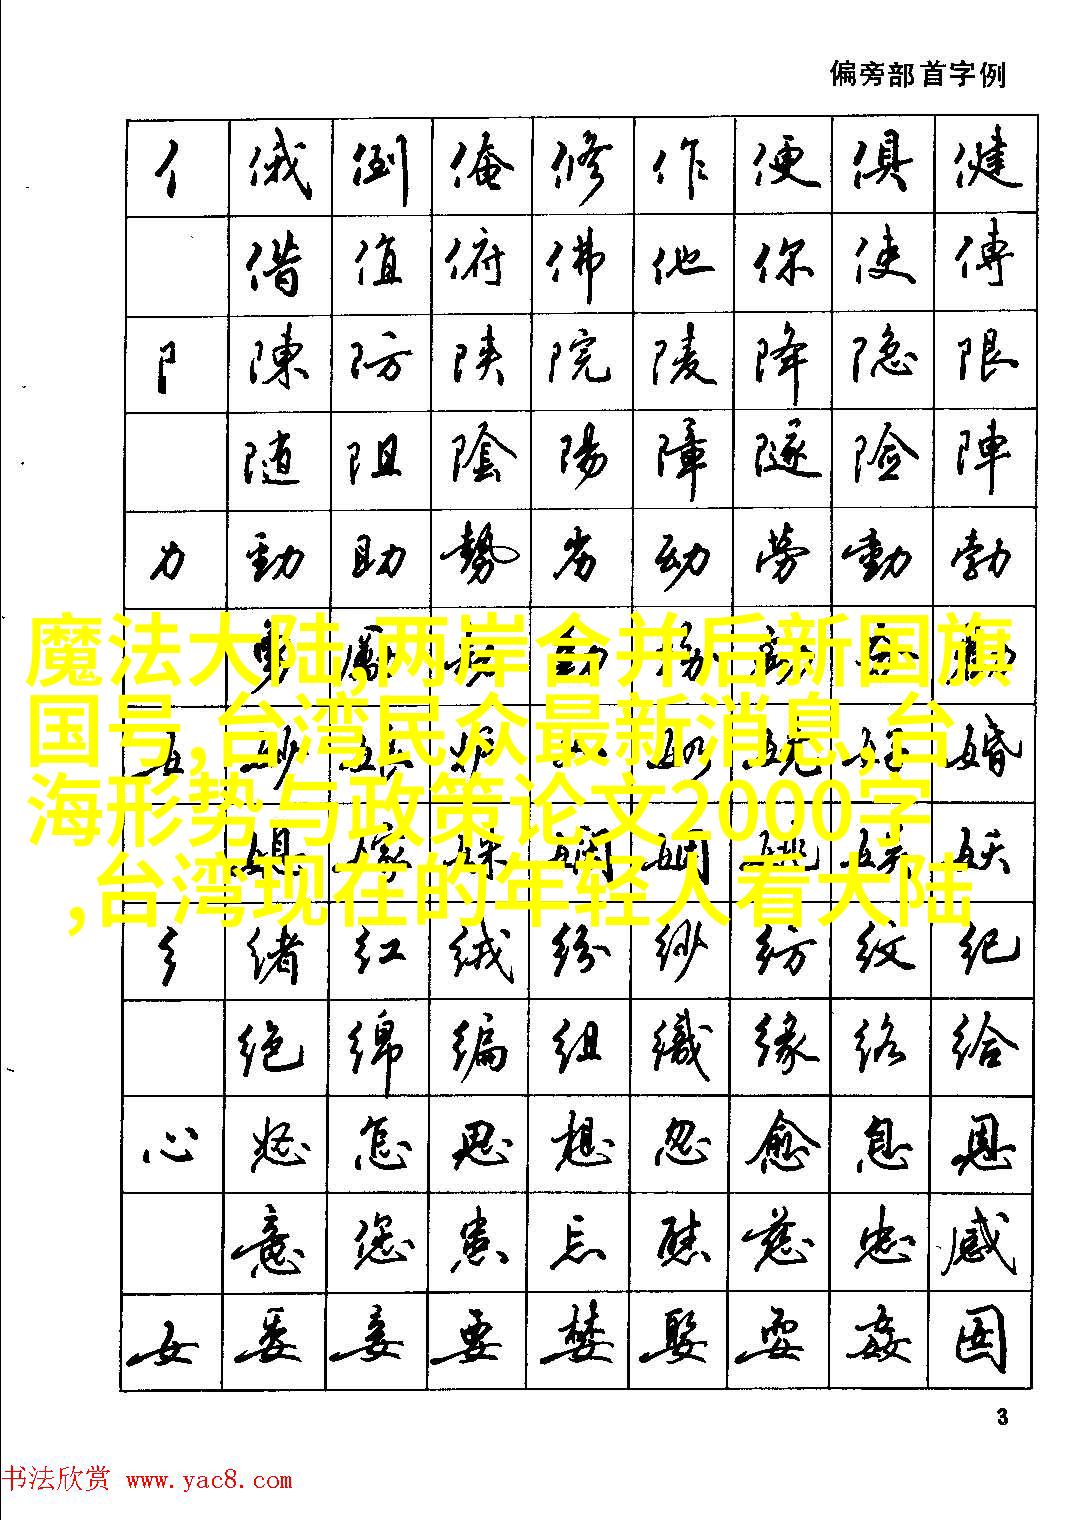 偏旁部首字例
亻 俄 倒 俺 修 作 便 俱 健
借 值 俯 佛 他 你 使 傅
阝 陳 防 陕 院 陵 降 隐 限
随 阻 陰 陽 障 隧 险 陣
力 動 助 勢 劣 动 劳 勤 勃
魔法大陆,两岸合并后新国旗
国号,台湾民众最新消息,台
婚
海形势与政策论文2000字
妖
,台湾现在的年轻人看大陆
纟 绪 红 绒 纷 纱 纺 纹 纪
绝 绵 编 组 織 缘 络 给
心 怒 怎 思 想 忽 愈 息 恩
意 您 患 忘 慈 忠 感
女 委 妾 要 婪 娶 耍 姦
3
书法欣赏 www.yac8.com